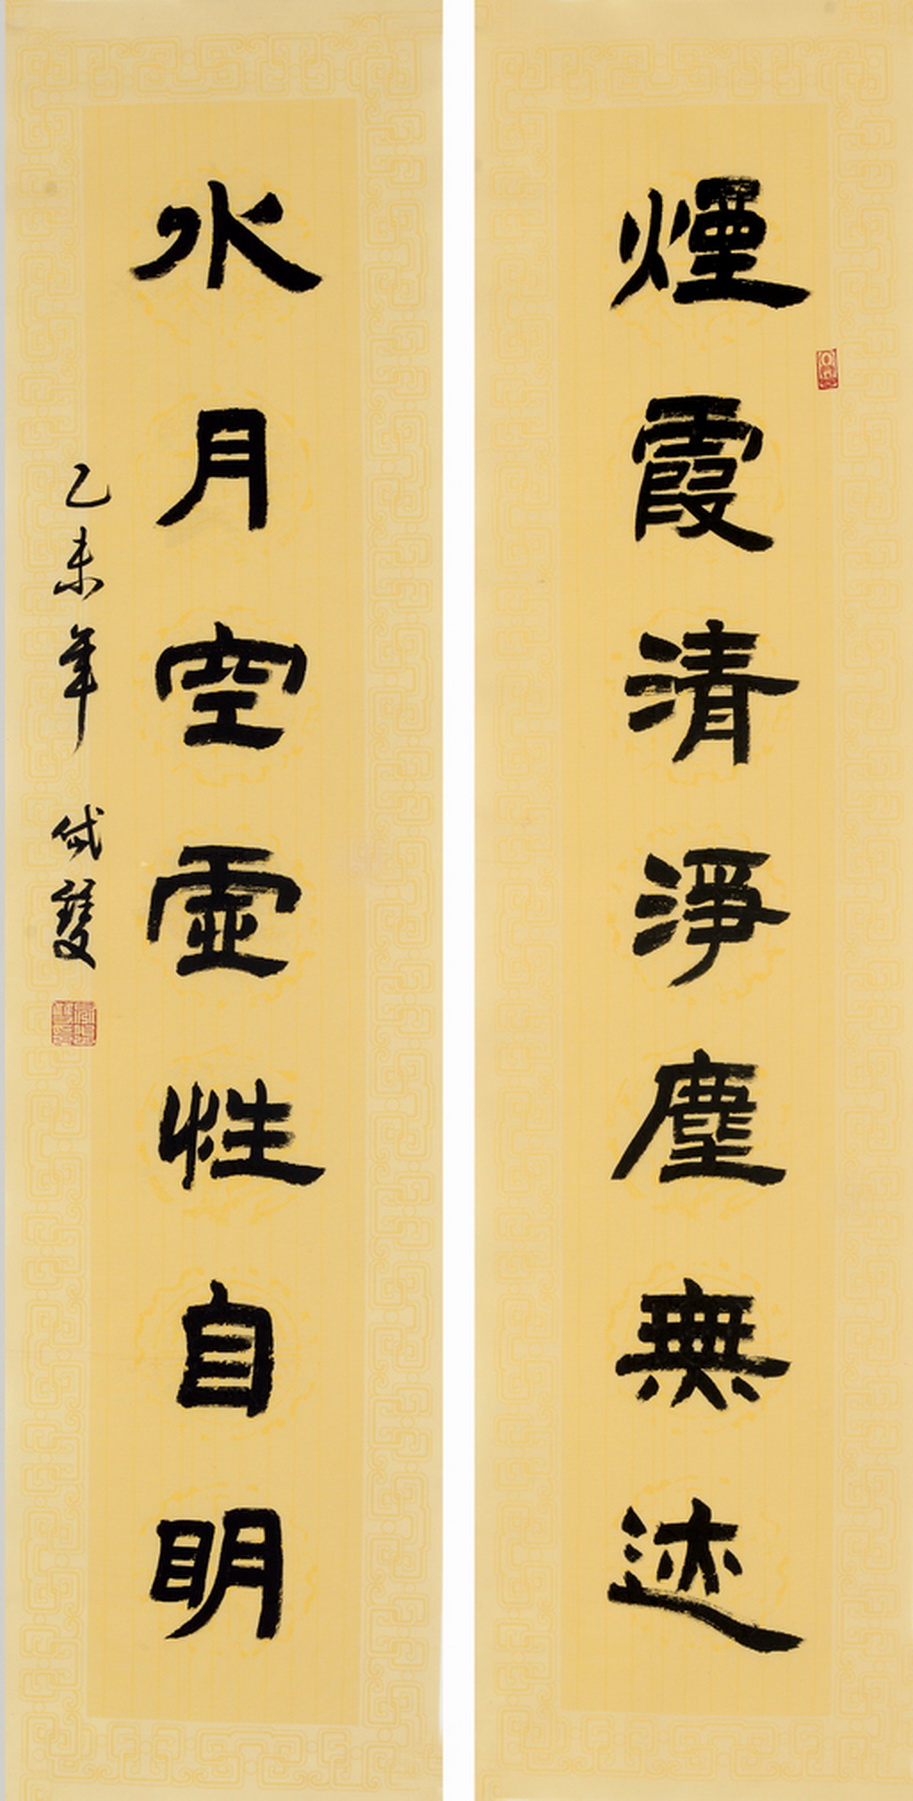 煙霞清淨塵無迹
水月空虛性自明
乙未年
雙